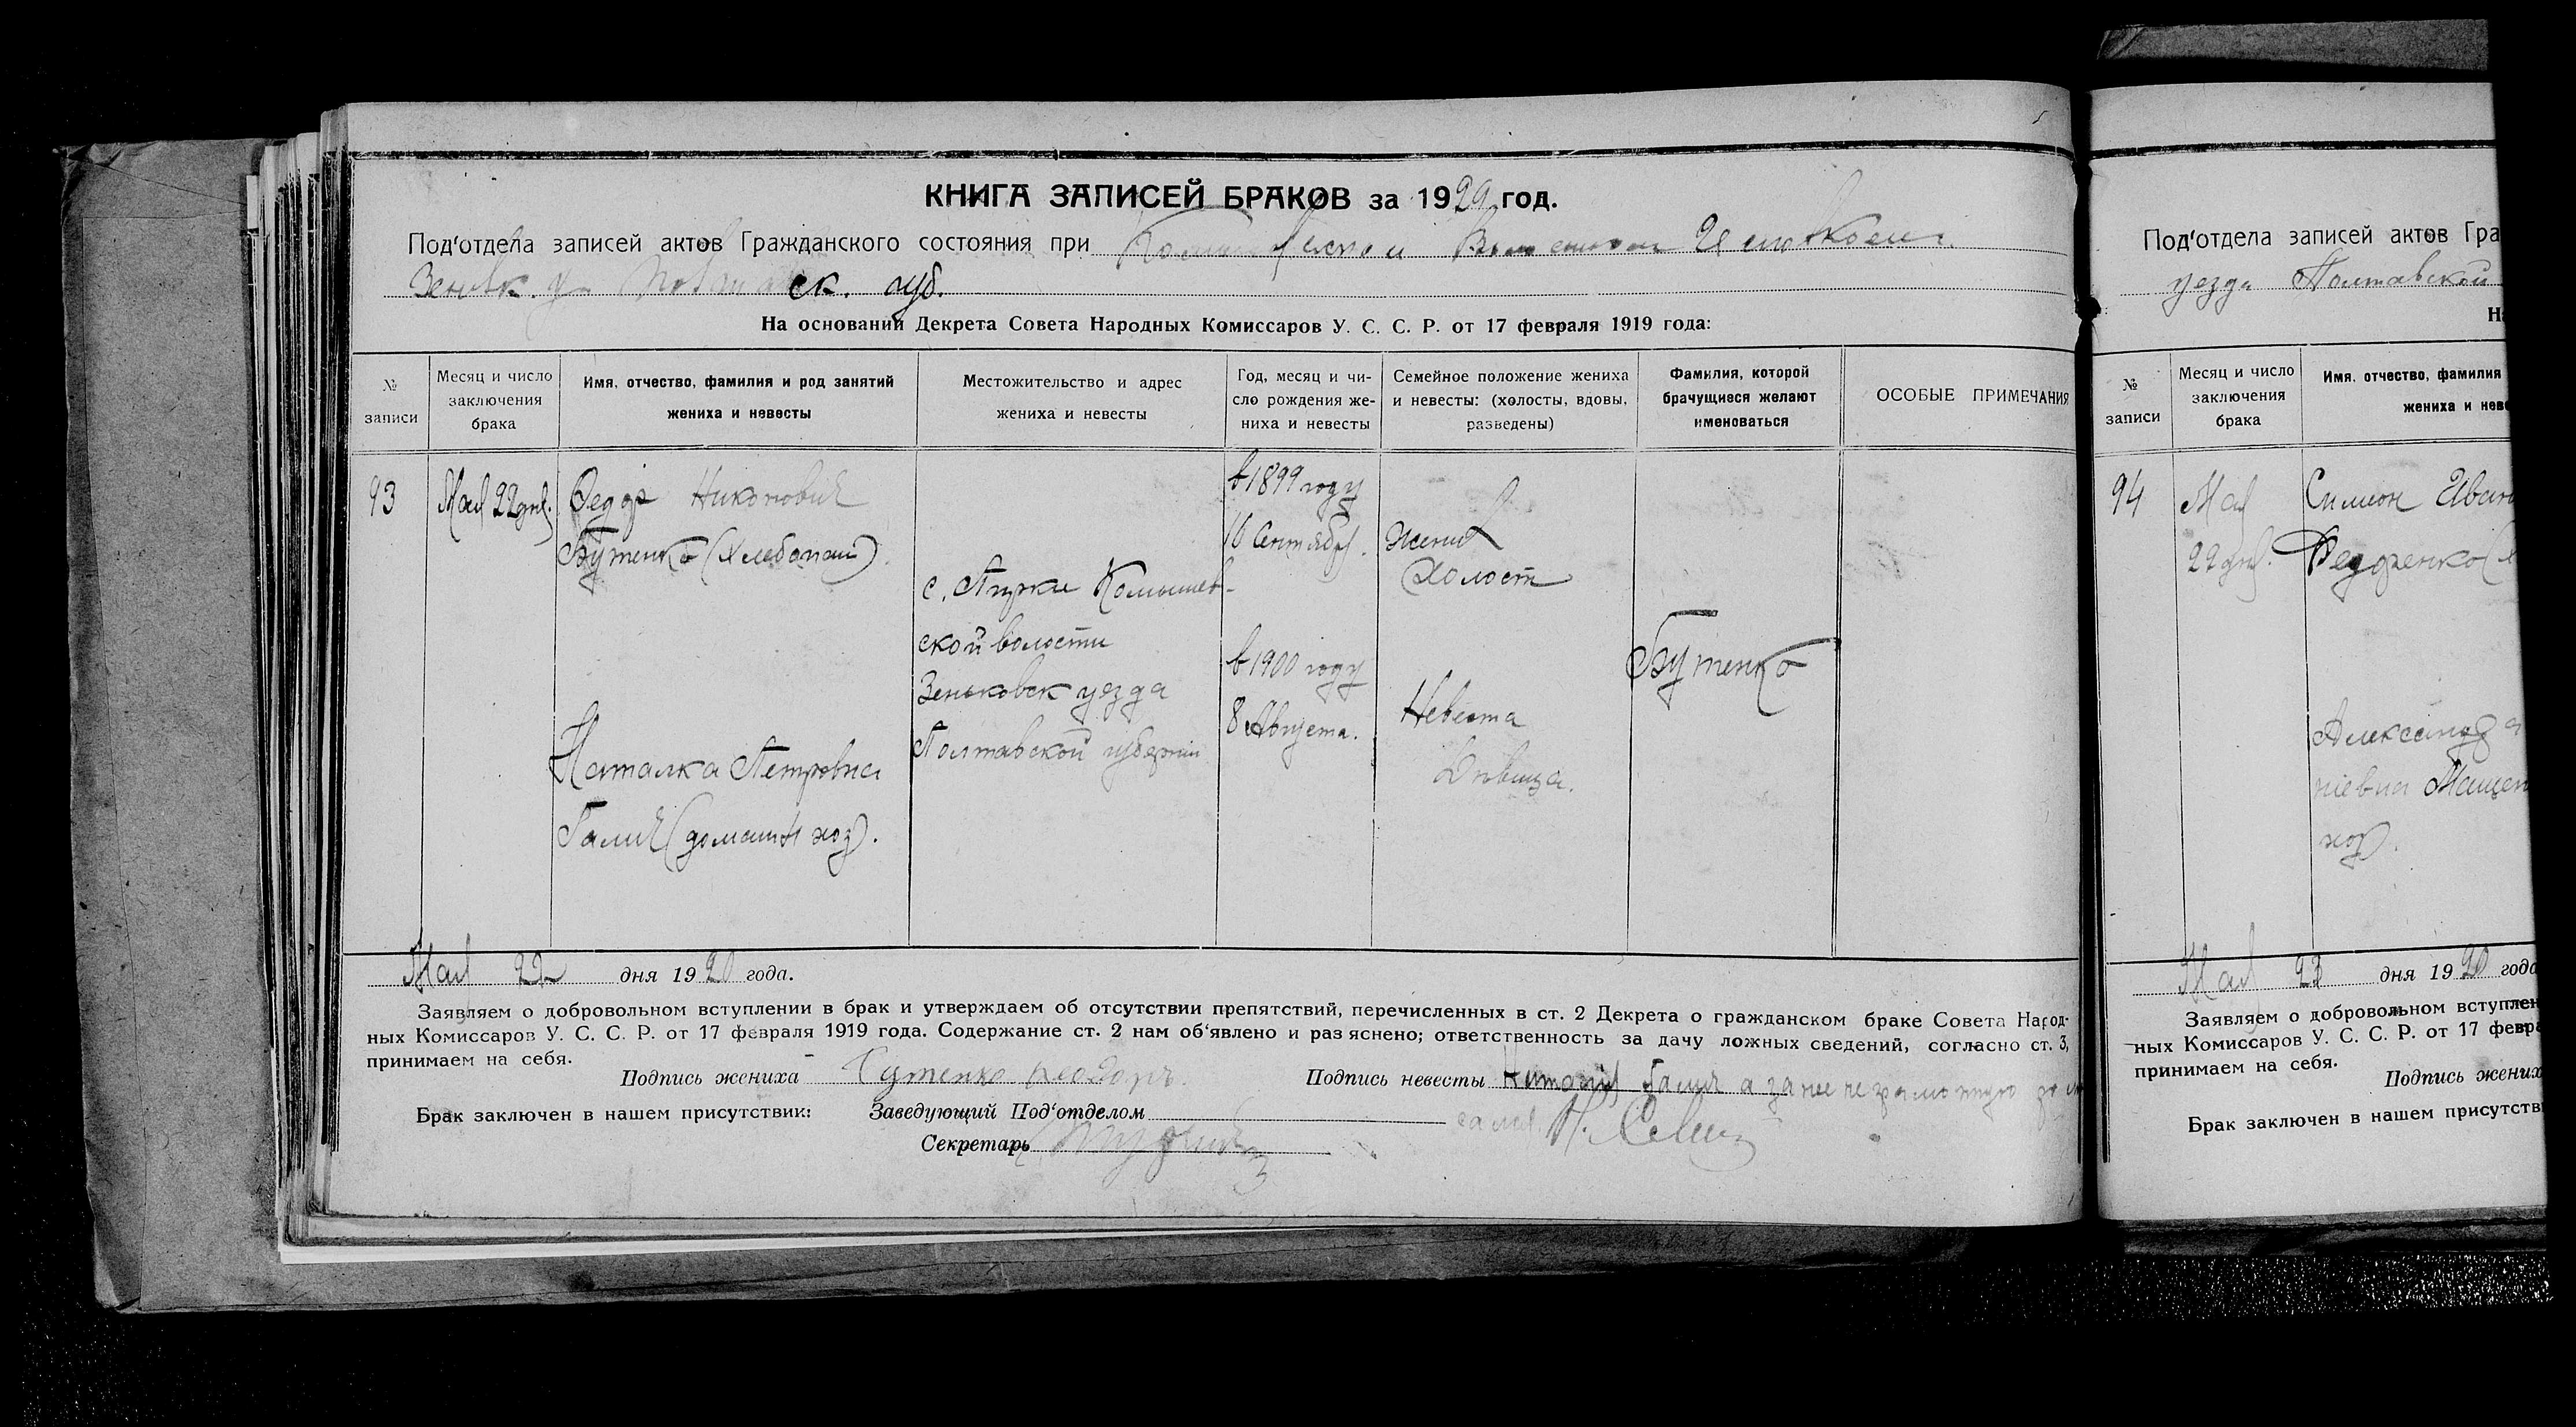 КНИГА ЗАПИСЕЙ БРАКОВ за 1920 год.
Под'отдела записей актов Гражданского состояния при
Зеньк. у. ск. губ.
На основании Декрета Совета Народных Комиссаров У. С. С. Р. от 17 февраля 1919 года:
№ записи
Месяц и число заключения брака
Имя, отчество, фамилия и род занятий жениха и невесты
Местожительство и адрес жениха и невесты
Год, месяц и число рождения жениха и невесты
Семейное положение жениха и невесты: (холосты, вдовы, разведены)
Фамилия, которой брачущиеся желают именоваться
ОСОБЫЕ ПРИМЕЧАНИЯ
93
Мая 22 дня.
Федор Никонович
Бутенко (хлебопаш)
Наталка Петровна
Галич (домашн хоз).
с. Пирки Комышев-
ской волости
Зеньковск уезда
Полтавской губернии
в 1899 году
16 Сентября.
в 1900 году
8 Августа.
Жених
холост
Невеста
Девица.
Бутенко
Мая 22 дня 1920 года.
Заявляем о добровольном вступлении в брак и утверждаем об отсутствии препятствий, перечисленных в ст. 2 Декрета о гражданском браке Совета Народ-
ных Комиссаров У. С. С. Р. от 17 февраля 1919 года. Содержание ст. 2 нам об'явлено и раз яснено; ответственность за дачу ложных сведений, согласно ст. 3,
принимаем на себя.
Подпись жениха Бутенко Феодоръ
Подпись невесты Галич а за нее неграмотную
Брак заключен в нашем присутствии: Заведующий Под'отделом
Секретарь
Под'отдела записей актов Гра
уезда Полтавской
На
№ записи
Месяц и число заключения брака
Имя, отчество, фамилия
жениха и неве
94
Мая
22 дня.
Симеон Иван
Федоренко (х
Александра
ніевна
хоз).
Мая 22 дня 1920 года
Заявляем о добровольном вступлен
ных Комиссаров У. С. С. Р. от 17 февра
принимаем на себя.
Подпись жених
Брак заключен в нашем присутстви